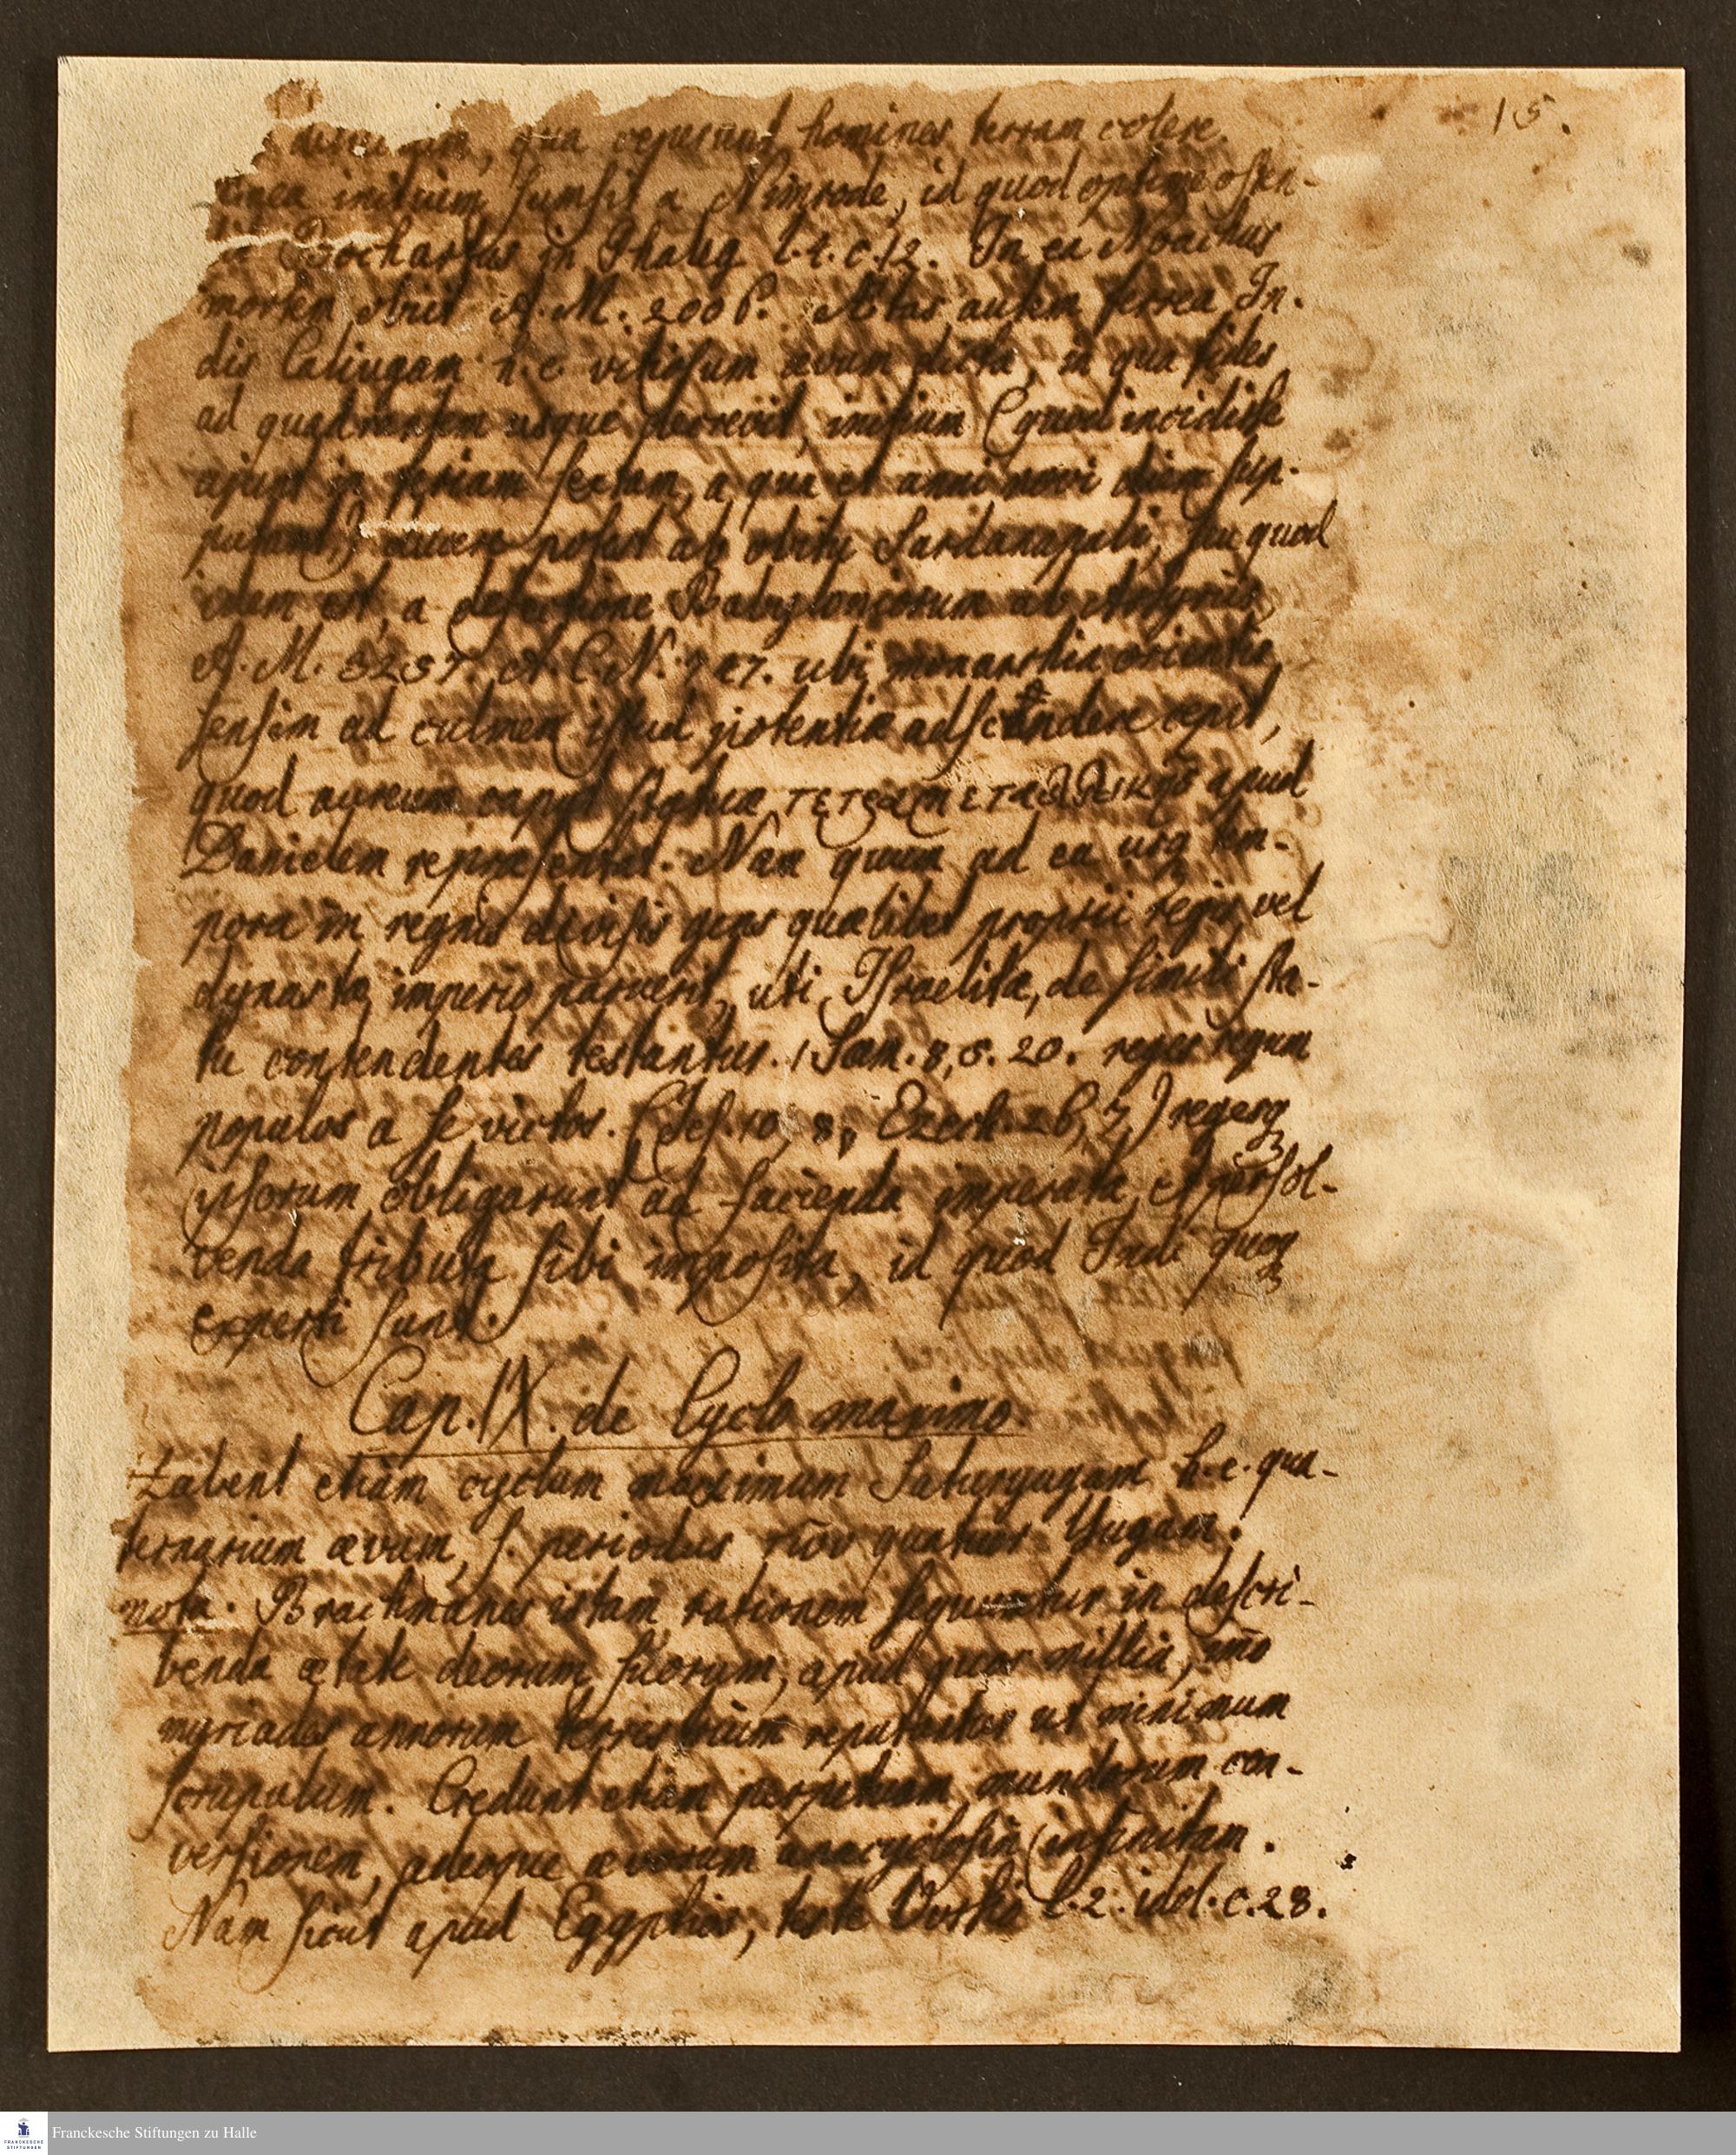 15.
qua ceperunt homines terram colere.
initium sumsit a Nimrode, id quod optime osten-
Bochartus in Phaleg l. 1. c. 12. In ea Noachus
mortem obiit A. M. 2006. Ætas autem ferrea In-
dis Caliugam h. e. vitiosum ævum dicta, in qua fides
ad quadrantem usque decrevit, initium (quod incidisse
ajunt in feriam sextam, a qua et anni novi diem sup-
putant,) ducere potest ab obitu Sardanapali, seu quod
idem est, a defectione Babyloniorum ab Assyriis,
A. M. 3237. A. C. N. 747. ubi monarchia orientis
sensim ad culmen istud potentiæ adscendere cepit,
quod aureum caput statuæ apud
Danielem repræsentat. Nam quum ad ea usq tem-
pora in regnis divisis gens quælibet proprii regis vel
dynastæ imperio paruerit, uti Israelitæ, de simili sta-
tu contendentes testantur. 1 Sam. 8, 5. 20. reges regum
populos a se victos. (Jes. 10, 8. Ezech. 26, 7.) regesq
ipsorum obligarunt ad facienda imperata, et persol-
venda tributa sibi imposita, id quod Indi quoq
experti sunt.
Cap. IX. de Cyclo maximo.
Habent etiam cyclum maximum Saturyugam h. e. qua-
ternarium ævum, s. periodus τῶν quatuor Yugam.
nota. Brachmanes istam rationem sequuntur in descri-
benda ætate deorum suorum, apud quos millia, imo
myriades annorum terrestrium reputantur ut minimum
scrupulum. Credunt etiam perpetuam mundorum con-
versionem, adeoque ævorum anacyclosin infinitam.
Nam sicut apud Egyptios, teste Vossio l. 2. idol. c. 28.
Franckesche Stiftungen zu Halle